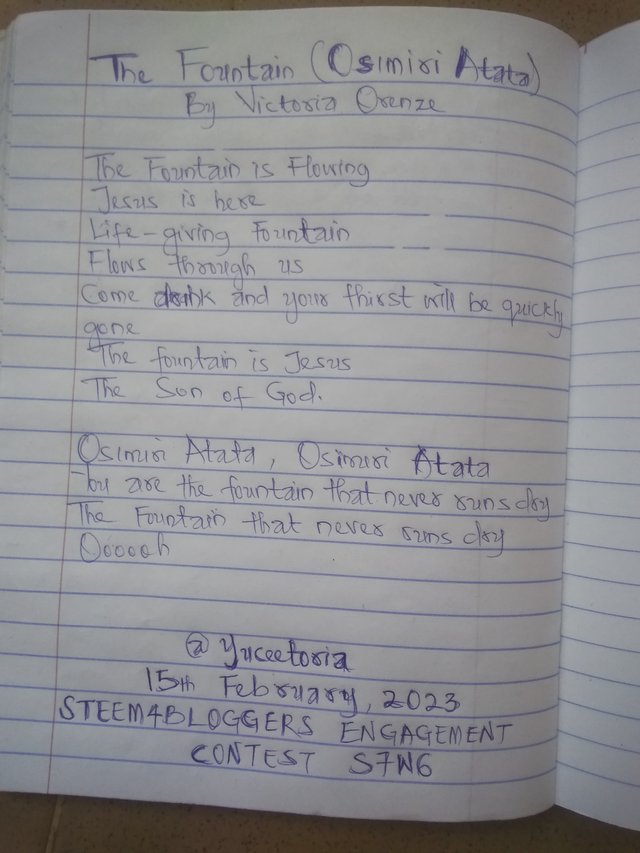 The Fountain (Osimiri Atata)
By Victoria Orenze
The Fountain is Flowing
Jesus is here
Life-giving Fountain
Flows through us
Come drink and your thirst will be quickly
gone
The fountain is Jesus
The Son of God.
Osimiri Atata, Osimiri Atata
You are the fountain that never runs dry
The Fountain that never runs dry
Oooooh
@yuceetoria
15th February, 2023
STEEM4BLOGGERS ENGAGEMENT
CONTEST S7W6